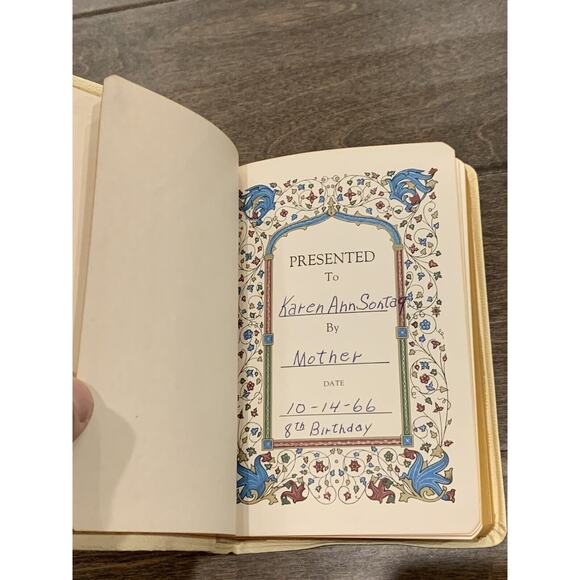 PRESENTED
To
Karen Ann Sontag
By
Mother
DATE
10-14-66
8th Birthday